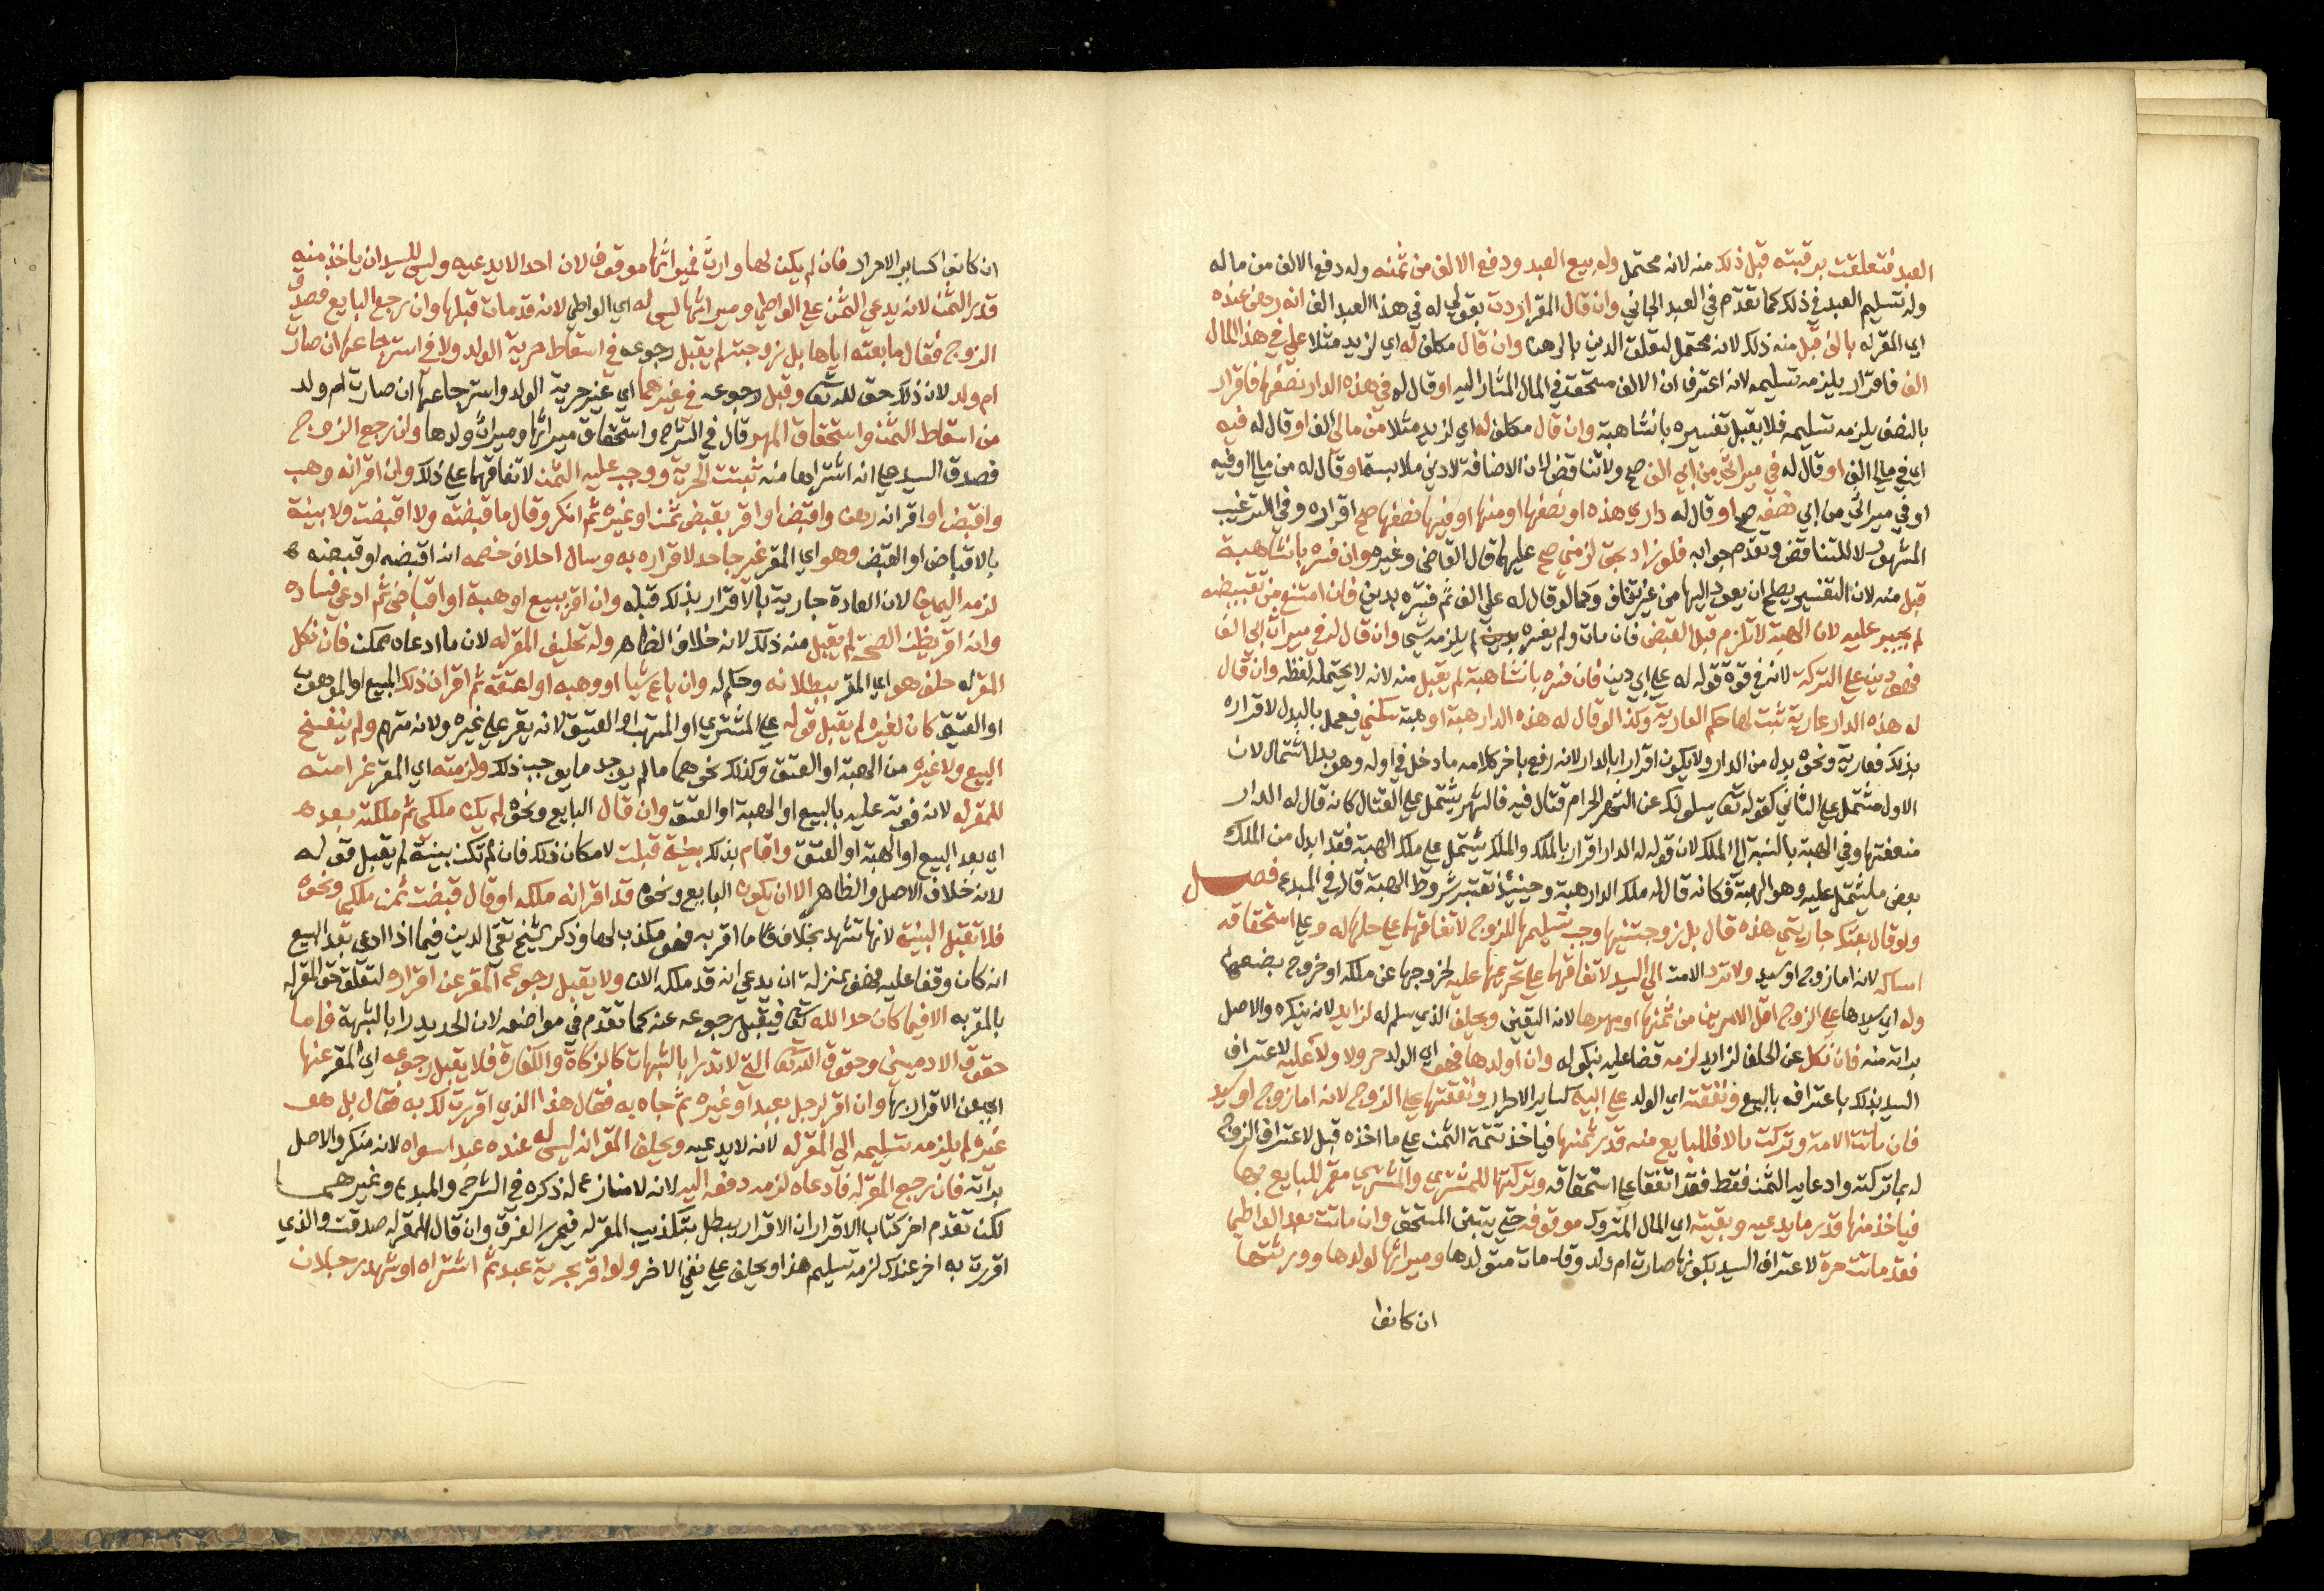 العبد فتعلقت برقبته قبل ذلك منه لانه محتمل وله بيع العبد ودفع الالف من ثمنه وله دفع الالف من ماله
وله تسليم العبد في ذلك كما تقدم في العبد الجاني وان قال المقر اردت بقولي له في هذا العبد الف انه رهن عنده
اي المقر له بالف قبل منه ذلك لانه محتمل لتعلق الدين بالرهن وان قال مكلف له اي لزيد مثلا علي في هذا المال
الف فاقرار يلزمه تسليمه لانه اعترف ان الالف مستحقة في المال المشار اليه او قال له في هذه الدار نصفها فاقرار
بالنصف يلزمه تسليمه فلا يقبل تفسيره بانشا هبة وان قال مكلف له اي لزيد مثلا من مالي الف او قال له فيه
اي في مالي الف او قال له في ميراثي من ابي الف صح ولا تناقض لان الاضافة لادنى ملابسة او قال له من مالي او فيه
او في ميراثي من ابي نصفه صح او قال له داري هذه او نصفها او منها او فيها نصفها صح اقراره وفي الترغيب
المشهور لا للتناقض وتقدم جوابه فلو زاد بحق لزمني صح عليهما قال القاضي وغيره وان فسره بانشا هبة
قبل منه لان التفسير يصلح ان يعود اليها من غير تناف وكما لو قال له علي الف ثم فسره بدين فان امتنع من تقبيضه
لم يجبر عليه لان الهبة لا تلزم قبل القبض فان مات ولم يفسره لم يلزمه شي وان قال له في ميراث ابي الف
فهو دين على التركة لانه في قوة قوله له على ابي دين فان فسره بانشا هبة لم يقبل منه لانه لا يحتمله لفظه وان قال
له هذه الدار عارية ثبت لها حكم العارية وكذا لو قال له هذه الدار هبة او هبة سكنى فيعمل بالبدل لاقراره
بذلك فعارية ونحوه بدل من الدار ولا يكون اقرارا بالدار لانه رفع باخر كلامه ما دخل في اوله وهو بدل اشتمال لان
الاول مشتمل على الثاني كقوله تعا يسئلونك عن الشهر الحرام قتال فيه فالشهر يشتمل على القتال كانه قال له الدار
منفعتها وفي الهبة بالنسبة الى الملك لان قوله له الدار اقرار بالملك والملك يشتمل على ملك الهبة فقد ابدل من الملك
بعض ما يشتمل عليه وهو الهبة فكانه قال له ملك الدار هبة وحينئذ تعتبر شروط الهبة قال في المبدع فصل
ولو قال بعتك جاريتي هذه قال بل زوجتنيها وجب تسليمها للزوج لاتفاقهما على حلها له وعلى استحقاقه
امساكه لانه اما زوج او سيد ولا ترد الامة الى السيد لاتفاقهما على تحريمها عليه لخروجها عن ملكه او خروج بضعها
وله اي سيدها على الزوج اقل الامرين من ثمنها او مهرها لانه اليقين ويحلف الذي سلم له لزايد لانه ينكره والاصل
براته منه فان نكل عن الحلف لزايد لزمه قضا عليه بنكوله وان اولدها فهو اي الولد حر ولا ولا عليه لاعتراف
السيد بذلك باعترافه بالبيع ونفقته اي الولد على ابيه كساير الاحرار ونفقتها على الزوج لانه اما زوج او سيد
فان ماتت الامة وتركت مالا فللبايع منه قدر ثمنها فياخذ تتمة الثمن على ما اخذه قبل لاعتراف الزوج
له بما تركته وادعايه الثمن فقط فقد اتفقا على استحقاقه وتركتها للمشتري والمشتري مقر للبايع بها
فياخذ منها قدر ما يدعيه وبقيته اي المال المتروك موقوفه حتى يتبين المستحق وان ماتت بعد الواطي
فقد ماتت حرة لاعتراف السيد بكونها صارت ام ولد وقد مات مستولدها وميراثها لولدها وورثتها
ان كانوا
ان كانوا كساير الاحرار فان لم يكن لها وارث فميراثها موقوف لان احدا لا يدعيه وليس للسيد ان ياخذ منه
قدر الثمن لانه يدعي الثمن على الواطي وميراثها ليس له اي الواطي لانه قد مات قبلها وان رجع البايع فصدق
الزوج فقال ما بعته اياها بل زوجته لم يقبل رجوعه في اسقاط حرية الولد ولا في استرجاعها ان صارت
ام ولد لان ذلك حق لله تعا وقبل رجوعه في غيرهما اي غير حرية الولد واسترجاعها ان صارت ام ولد
من اسقاط الثمن واستحقاق المهر قال في الشرح واستحقاق ميراثها وميراث ولدها وان رجع الزوج
فصدق السيد على انه اشتراها منه ثبتت الحرية ووجب عليه الثمن لاتفاقهما على ذلك وان اقر انه وهب
واقبض او اقر انه رهن واقبض او اقر بقبض ثمن او غيره ثم انكر وقال ما قبضته ولا اقبضت ولا بينة
بالاقباض او القبض وهو اي المقر غير جاحد لاقراره به وسال احلاف خصمه انه اقبضه او قبضه
لزمه اليمين لان العادة جارية بالاقرار بذلك قبله وان اقر ببيع او هبة او اقباض ثم ادعى فساده
وانه اقر يظن الصحة لم يقبل منه ذلك لانه خلاف الظاهر وله تحليف المقر له لان ما ادعاه ممكن فان نكل
المقر له حلف هو اي المقر ببطلانه وحكم له وان باع شيا او وهبه او اعتقه ثم اقر ان ذلك المبيع او الموهوب
او العتيق كان لغيره لم يقبل قوله على المشتري او المتهب او العتيق لانه يقر على غيره ولانه متهم ولم ينفسخ
البيع ولا غيره من الهبة او العتق وكذلك نحوهما ما لم يوجد ما يوجب ذلك ولزمته اي المقر غرامته
للمقر له لانه فوته عليه بالبيع او الهبة او العتق وان قال البايع ونحوه لم يكن ملكي ثم ملكته بعد
اي بعد البيع او الهبة او العتق واقام بذلك بينة قبلت لامكان ذلك فان لم تكن بينة لم يقبل قوله
لانه خلاف الاصل والظاهر الا ان يكون البايع ونحوه قد اقر انه ملكه او قال قبضت ثمن ملكي ونحوه
فلا تقبل البينة لانها تشهد بخلاف ما اقر به فهو مكذب لها وذكر شيخ تقي الدين فيما اذا ادعى بعد البيع
انه كان وقفا عليه فهو بمنزلة ان يدعي انه قد ملكه الان ولا يقبل رجوع المقر عن اقراره لتعلق حق المقر له
بالمقر به الا فيما كان حدا لله تعا فيقبل رجوعه عنه كما تقدم في مواضعه لان الحد يدرا بالشبهة فاما
حقوق الادميين وحقوق الله تعا التي لا تدرا بالشبهات كالزكاة والكفارة فلا يقبل رجوعه اي المقر عنها
اي عن الاقرار بها وان اقر لرجل بعبد او غيره ثم جاه به فقال هذا الذي اقررت لك به فقال بل هو
غيره لم يلزمه تسليمه الى المقر له لانه لا يدعيه ويحلف المقر انه ليس له عنده عبد اسواه لانه منكر والاصل
براته فان رجع المقر له فادعاه لزمه دفعه اليه لانه لا منازع له ذكره في الشرح والمبدع وغيرهما
لكن تقدم اخر كتاب الاقرار ان الاقرار يبطل بتكذيب المقر له فيحرر الفرق وان قال المقر له صدقت والذي
اقررت به اخر عندك لزمه تسليم هذا ويحلف على نفي الاخر ولو اقر بحرية عبد ثم اشتراه او شهد رجلان